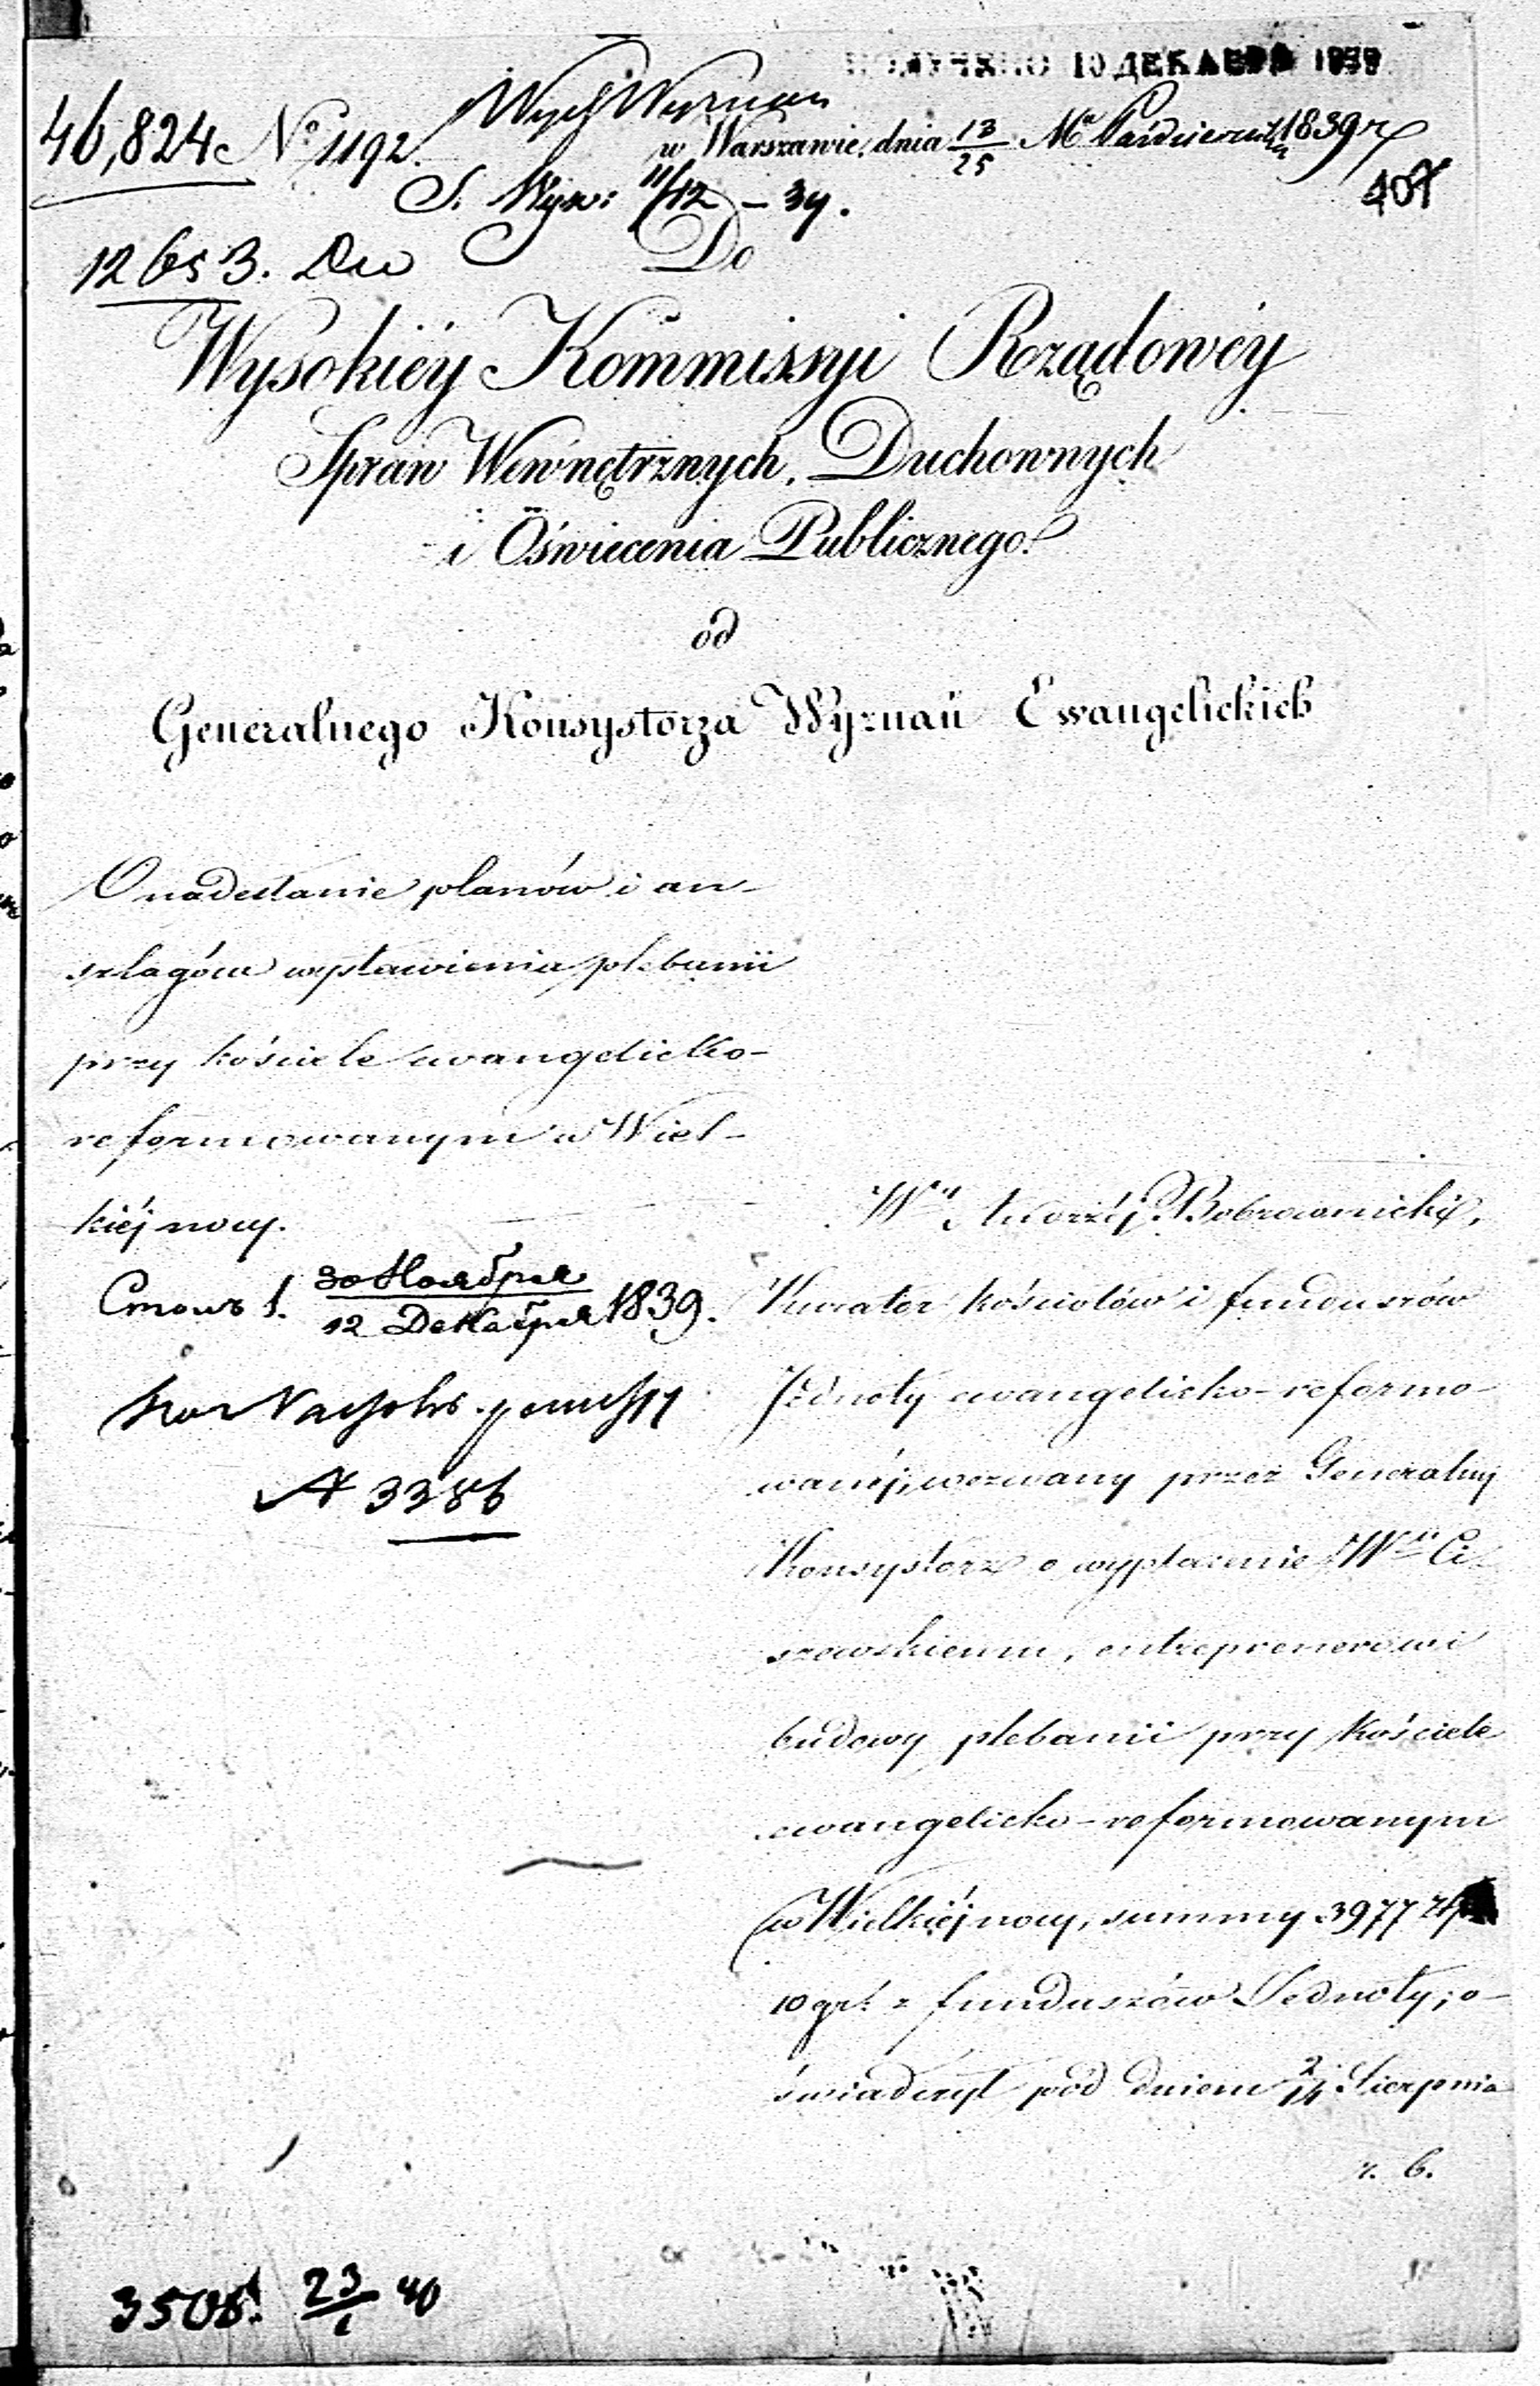 ПОЛУЧЕНО 10 ДЕКАБРЯ 1839
46,824 No 1192.
w Warszawie, dnia 13/25 Ma Października 1839 r
407
S. Wyzn: 11/12 – 39.
Do
Wysokiéy Kommissyi Rządowéy
Spraw Wewnętrznych, Duchownych
i Oświecenia Publicznego.
od
Generalnego Konsystorza Wyznań Ewangelickich
O nadesłanie planów i an-
szlagów wystawienia plebanii
przy kościele ewangelicko-
reformowanym w Wiel-
kiéj nocy.
30 Ноября
12 Декабря 1839.
3386
Wny Andrzéj Bobrownicki,
Kurator kościołów i funduszów
Jednoty ewangelicko-reformo-
wanéj, wezwany przez Generalny
Konsystorz o wypłacenie Wmu Ci-
szewskiemu, entreprenerowi
budowy plebanii przy kościele
ewangelicko-reformowanym
w Wielkiéj nocy, summy 3977 złp
10 gr. z funduszów Jednoty; o-
świadczył pod dniem 2/14 Sierpnia
r. b.
23/1 40